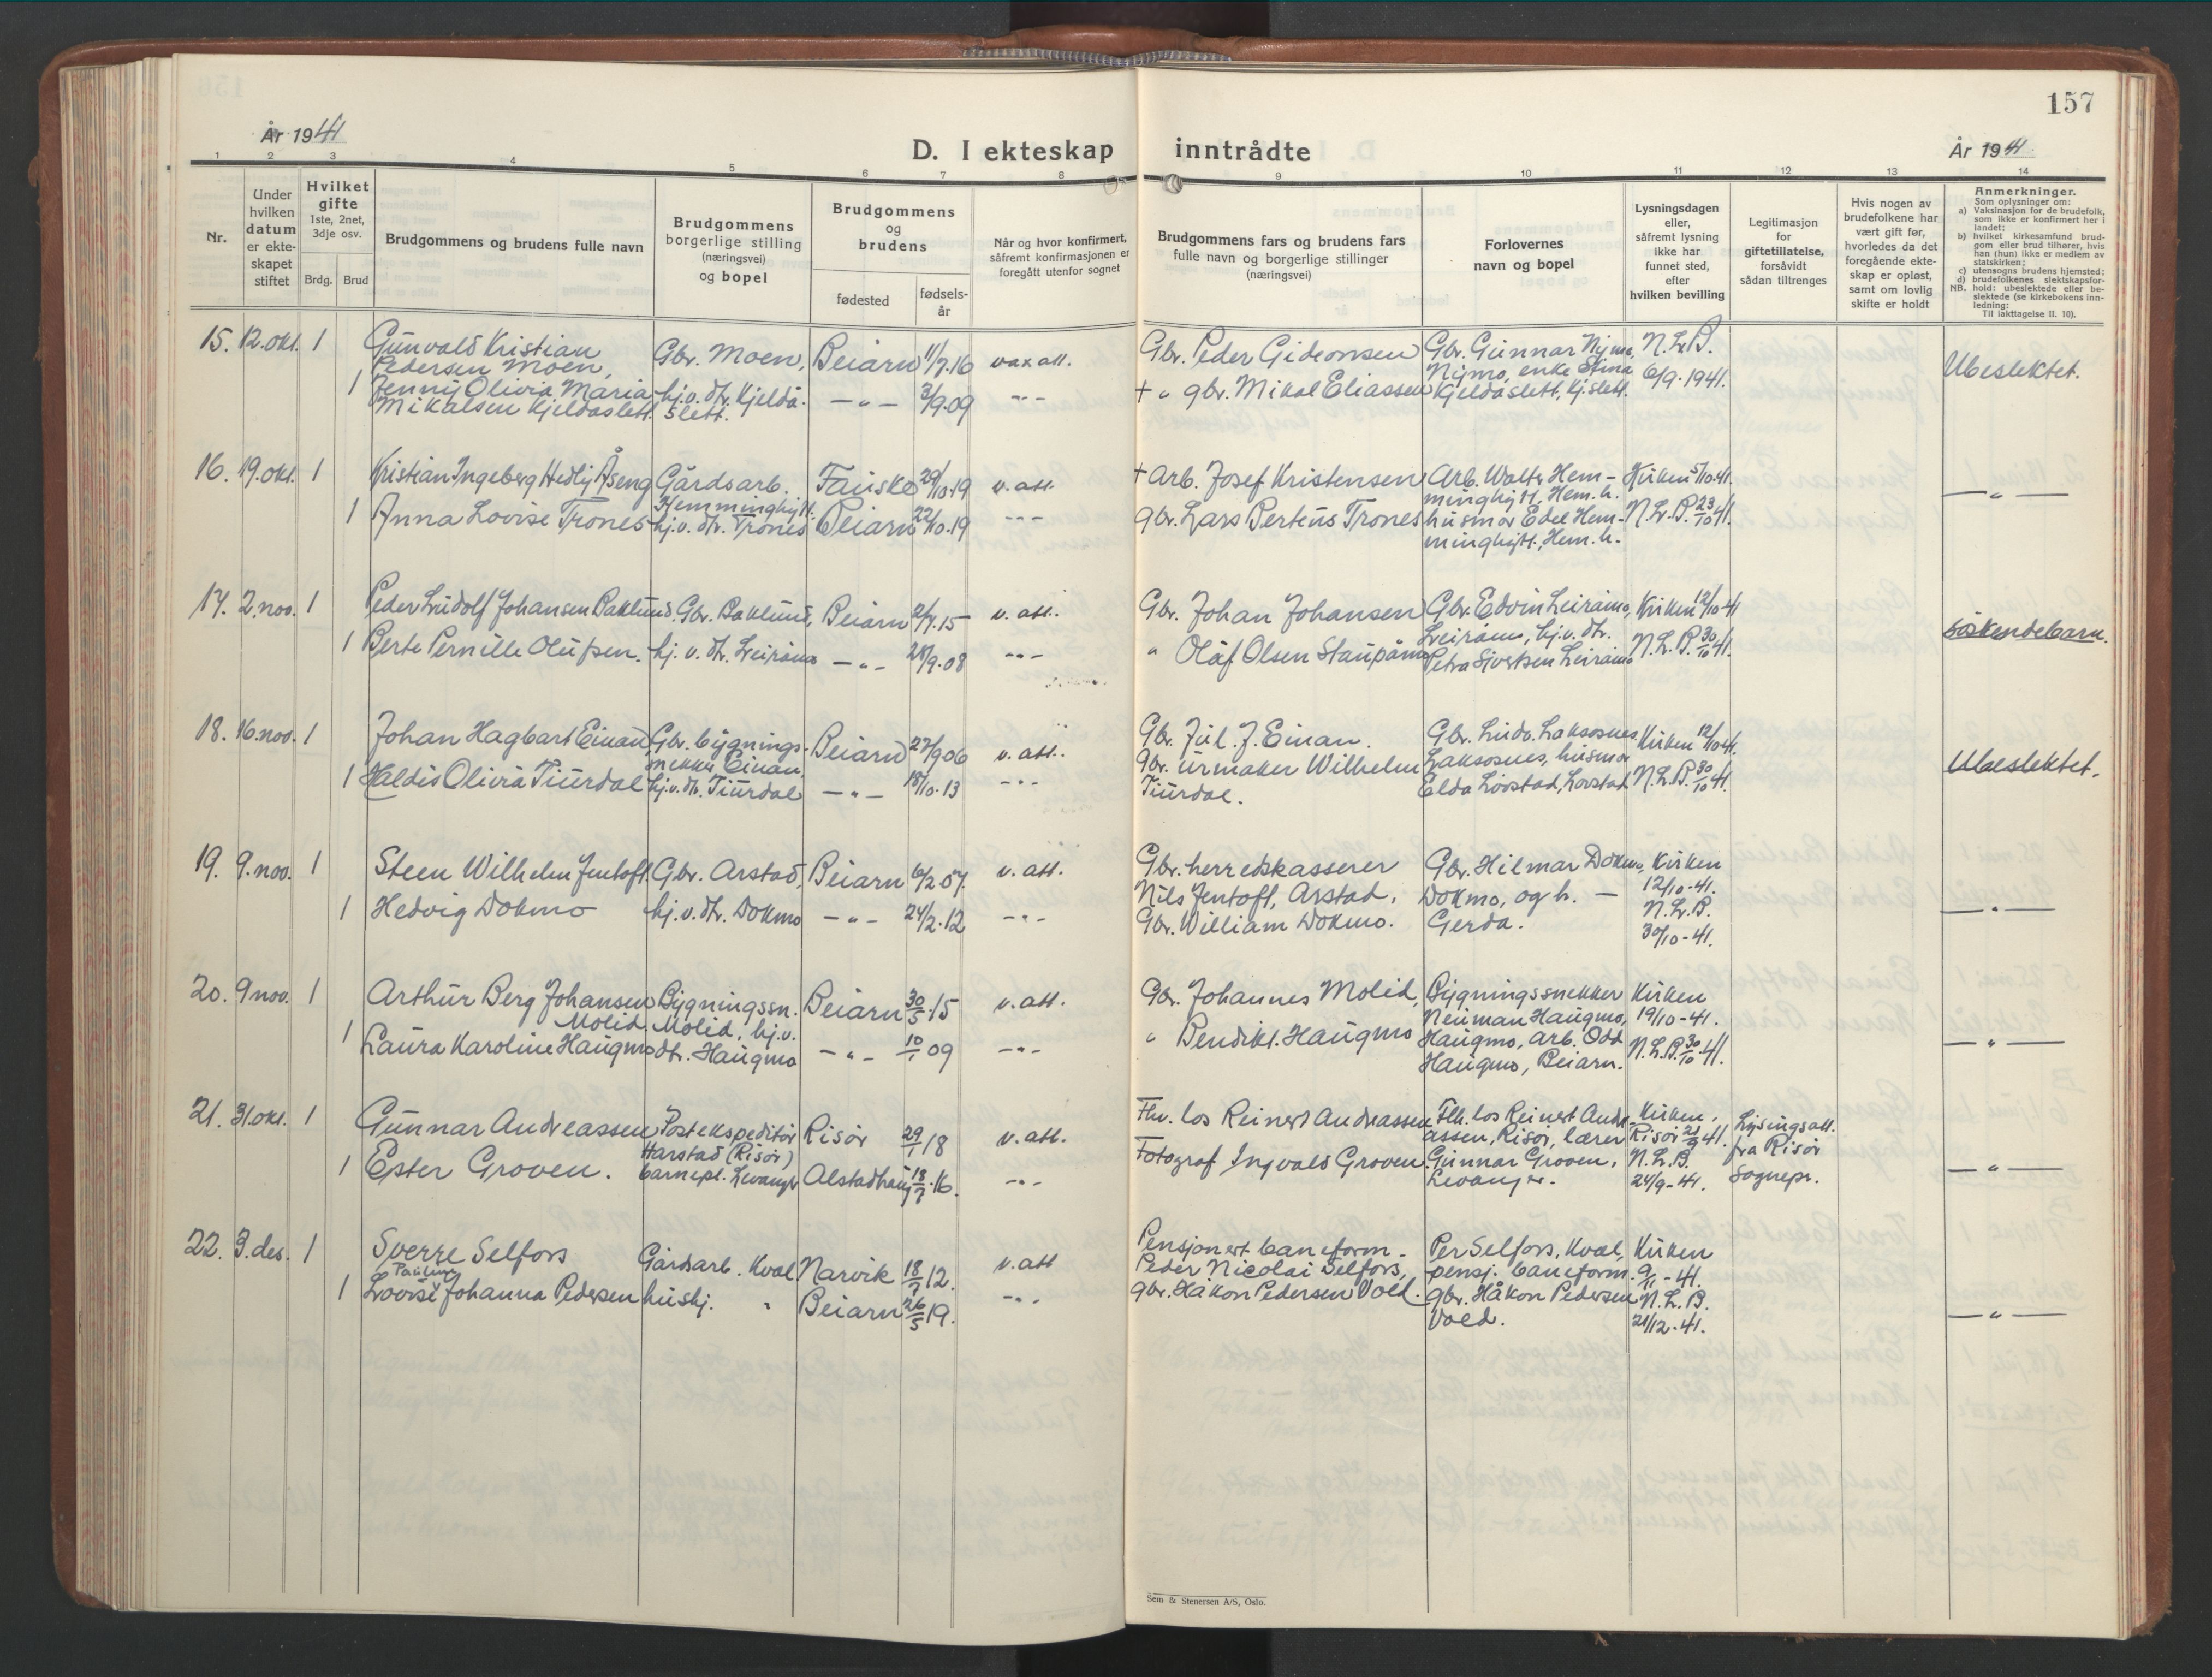 157
År 1941
D. I ekteskap inntrådte
År 1941.
1 2 3 4 5 6 7 8 9 10 11 12 13 14
Nr.
Under hvilken datum er ekte-skapet stiftet
Hvilket gifte
1ste, 2net, 3dje osv.
Brdg. Brud
Brudgommens og brudens fulle navn
Brudgommens borgerlige stilling (næringsvei) og bopel
Brudgommens og brudens
fødested
fødsels-år
Når og hvor konfirmert, såfremt konfirmasjonen er foregått utenfor sognet
Brudgommens fars og brudens fars fulle navn og borgerlige stillinger (næringsvei)
Forlovernes navn og bopel
Lysningsdagen eller, såfremt lysning ikke har funnet sted, efter hvilken bevilling
Legitimasjon for giftetillatelse, forsåvidt sådan tiltrenges
Hvis nogen av brudefolkene har vært gift før, hvorledes da det foregående ekte-skap er opløst, samt om lovlig skifte er holdt
Anmerkninger.
Som oplysninger om:
a) Vaksinasjon for de brudefolk, som ikke er konfirmert her i landet;
b) hvilket kirkesamfund brud-gom eller brud tilhører, hvis han (hun) ikke er medlem av statskirken;
c) utensogns brudens hjemsted;
d) brudefolkenes slektskapsfor-hold: ubeslektede eller be-slektede (se kirkebokens inn-ledning:
NB.
Til iakttagelse II. 10).
15. 12. okt. 1 Gunvald Kristian Gbr. Moen, Beiarn 11/7.16 vax att. Gbr. Peder Gideonsen Gbr. Gunnar Nymo, N.L.B.
Pedersen Moen, Nymo, enke Stina 6/9.1941. Ubeslektet.
1 Jenny Olivia Maria hj.v. dtr. Kjeldå- — " — 3/9.09 — " — + " gbr. Mikal Eliassen Kjeldåslett, Kj.slett.
Mikalsen Kjeldåslett. slett.
16. 19. okt. 1 Kristian Ingeberg Hedly Åseng Gårdsarb. Fauske 29/10.19 v. att. + Arb. Josef Kristensen Arb. Walter Hem- Kirken 5/10.41.
Hemminghytt. minghytt, Hem.h. — " —
1 Anna Lovise Trones hj.v. dtr. Trones Beiarn 22/10.19 — " — gbr. Lars Berteus Trones husmor Edel Hem- N.L.B. 23/10 41.
minghytt., Hem.h.
17. 2. nov. 1 Peder Ludolf Johansen Baklund. Gbr. Baklund, Beiarn 2/7.15 v. att. Gbr. Johan Johansen Gbr. Edvin Leiråmo, Kirken 12/10-41
Leiråmo, hj.v. dtr. söskendebarn.
1 Berte Pernille Olufsen. hj. v. dtr. Leiråmo — " — 28/9.08 — " — " Olaf Olsen Staupåmo Petra Sivertsen Leiråmo N.L.B. 30/10 41.
18. 16. nov. 1 Johan Hagbart Einan Gbr. bygnings- Beiarn 27/9 06 v. att. Gbr. Jul. J. Einan. Gbr. Ludv. Laksosnes, Kirken 12/10 41.
snekker Einan, Gbr. urmaker Wilhelm Laksosnes, husmor Ubeslektet.
1 Haldis Olivia Tiurdal hj.v. dtr. Tiurdal — " — 18/10.13 — " — Tiurdal. Elda Lovstad, Lovstad N.L.B. 30/10 41.
19. 9. nov. 1 Steen Wilhelm Jentoft. Gbr. Arstad, Beiarn 6/2 07. v. att. Gbr. herredskasserer Gbr. Hilmar Dokmo, Kirken
Nils Jentoft, Arstad, Dokmo, og h. — 12/10-41.
1 Hedvig Dokmo hj.v. dtr. Dokmo — " — 24/2.12 — " — Gbr. William Dokmo. Gerda. N.L.B. — " —
30/10-41.
20. 9 nov. 1 Arthur Berg Johansen Bygningssn. Beiarn 30/5.15 v. att. Gbr. Johannes Molid, Bygningssnekker Kirken
Molid. Molid, hj.v. Neuman Haugmo, 19/10-41.
1 Laura Karoline Haugmo dtr. Haugmo — " — 10/1 09 — " — " Bendikt. Haugmo Haugmo, arb. Odd N.L.B. 30/10 41. — " —
Haugmo, Beiarn.
21. 31. okt. 1 Gunnar Andreassen Postekspeditör Risör 29/1 18 v. att. Fhv. los Reinert Andreassen Fhv. los Reinert Andr- Kirken, Lysingsatt.
Harstad (Risör) assen, Risör, lærer Risör 21/9 41. fra Risör
1 Ester Groven. barnepl. Levanger Alstadhaug 18/7.16. — " — Fotograf Ingvald Groven. Gunnar Groven, N.L.B. Sognepr. — " —
Levanger. 24/9-41.
22. 3. des. 1 Sverre Selfors Gårdsarb. Kval Narvik 18/7 12. v. att Pensjonert baneform- Per Selfors, Kval, Kirken
Pauline Peder Nicolai Selfors, pensj. baneform. 9/11-41.
1 Lovise Johanna Pedersen hushj. " Beiarn 26/5 19. — " — gbr. Håkon Pedersen Vold. gbr. Håkon Pedersen N.L.B.
Vold. 21/12-41. — " —
Sem & Stenersen A/S, Oslo.